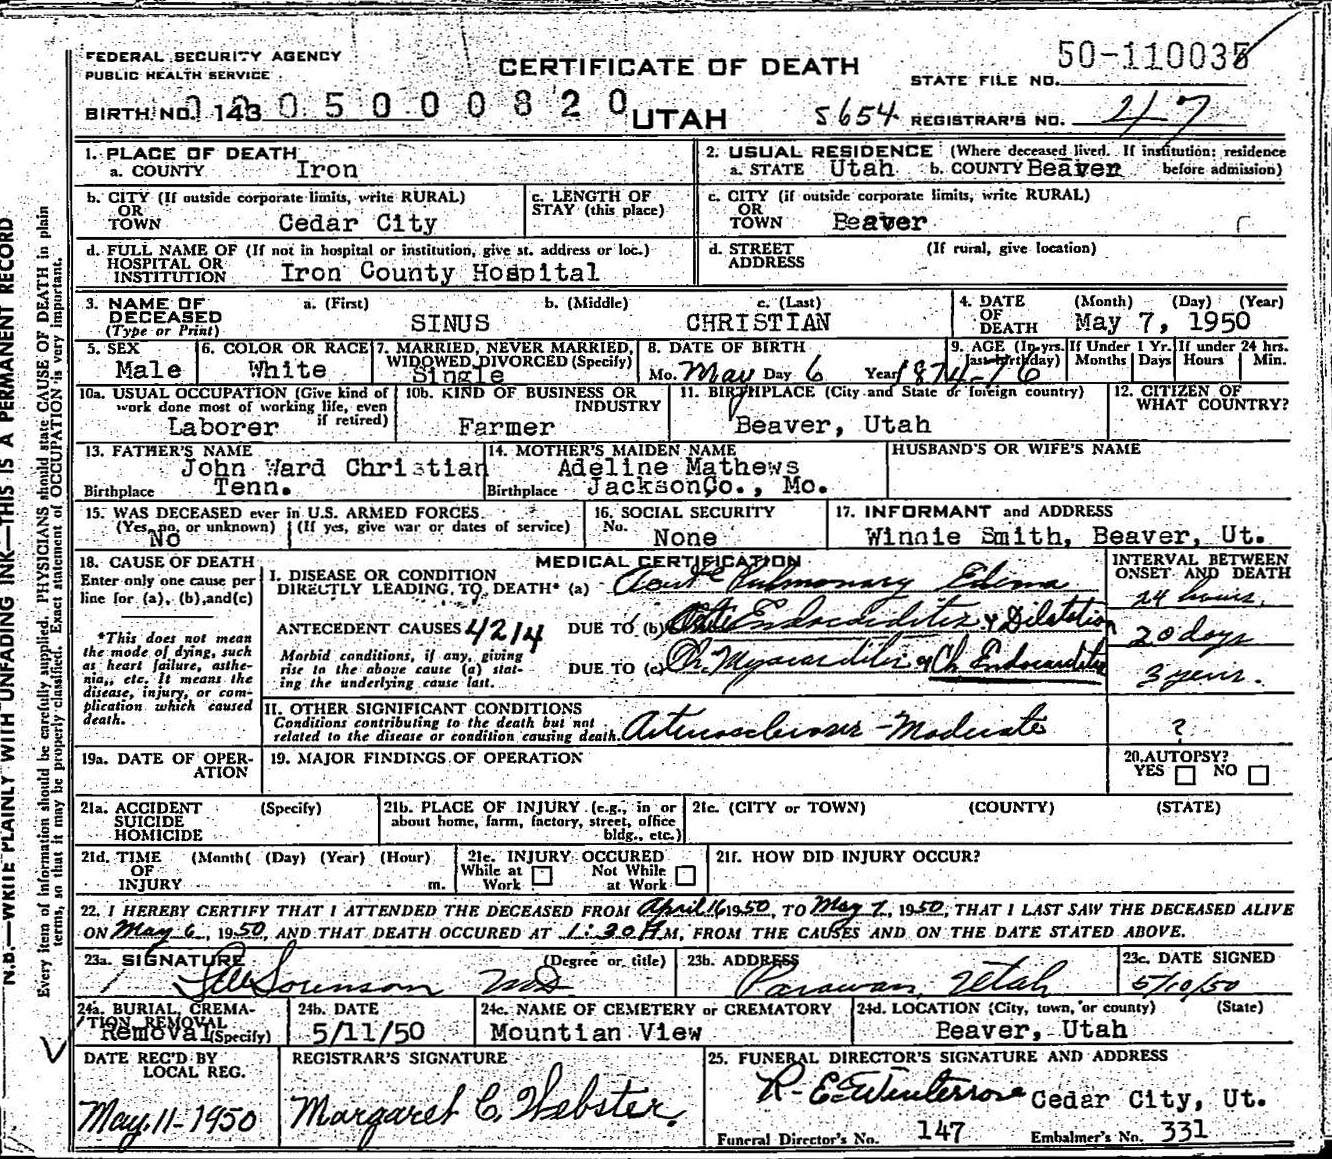 FEDERAL SECURITY AGENCY
PUBLIC HEALTH SERVICE
CERTIFICATE OF DEATH
STATE FILE NO. 50-110035
BIRTH NO. 143 0 5 0 0 0 8 2 0
UTAH
5654 REGISTRAR'S NO. 217
1. PLACE OF DEATH
a. COUNTY Iron
2. USUAL RESIDENCE (Where deceased lived. If institution: residence before admission)
a. STATE Utah b. COUNTY Beaver
b. CITY (If outside corporate limits, write RURAL) OR TOWN Cedar City
c. LENGTH OF STAY (this place)
c. CITY (if outside corporate limits, write RURAL) OR TOWN Beaver
d. FULL NAME OF (If not in hospital or institution, give st. address or loc.) HOSPITAL OR INSTITUTION Iron County Hospital
d. STREET ADDRESS (If rural, give location)
3. NAME OF DECEASED (Type or Print) a. (First) b. (Middle) c. (Last)
SINUS CHRISTIAN
4. DATE OF DEATH (Month) (Day) (Year)
May 7, 1950
5. SEX Male
6. COLOR OR RACE White
7. MARRIED, NEVER MARRIED, WIDOWED, DIVORCED (Specify) Single
8. DATE OF BIRTH Mo. May Day 6 Year 1874
9. AGE (In yrs. last birthday) 76 If Under 1 Yr. Months Days If under 24 hrs. Hours Min.
10a. USUAL OCCUPATION (Give kind of work done most of working life, even if retired) Laborer
10b. KIND OF BUSINESS OR INDUSTRY Farmer
11. BIRTHPLACE (City and State or foreign country) Beaver, Utah
12. CITIZEN OF WHAT COUNTRY?
13. FATHER'S NAME John Ward Christian
Birthplace Tenn.
14. MOTHER'S MAIDEN NAME Adeline Mathews
Birthplace JacksonCo., Mo.
HUSBAND'S OR WIFE'S NAME
15. WAS DECEASED ever in U.S. ARMED FORCES.
(Yes, no, or unknown) (If yes, give war or dates of service)
No
16. SOCIAL SECURITY No. None
17. INFORMANT and ADDRESS
Winnie Smith, Beaver, Ut.
18. CAUSE OF DEATH
Enter only one cause per line for (a), (b), and (c)
*This does not mean the mode of dying, such as heart failure, asthenia, etc. It means the disease, injury, or complication which caused death.
MEDICAL CERTIFICATION
INTERVAL BETWEEN ONSET AND DEATH
I. DISEASE OR CONDITION DIRECTLY LEADING TO DEATH* (a) Acute Pulmonary Edema 24 hours.
ANTECEDENT CAUSES 4214 DUE TO (b) Endocarditis & Dilatation 20 days
Morbid conditions, if any, giving rise to the above cause (a) stating the underlying cause last.
DUE TO (c) Ch. Myocarditis & Ch Endocarditis 3 years.
II. OTHER SIGNIFICANT CONDITIONS
Conditions contributing to the death but not related to the disease or condition causing death. Arteriosclerosis - Moderate ?
19a. DATE OF OPERATION
19. MAJOR FINDINGS OF OPERATION
20. AUTOPSY? YES NO
21a. ACCIDENT SUICIDE HOMICIDE (Specify)
21b. PLACE OF INJURY (e.g., in or about home, farm, factory, street, office bldg., etc.)
21c. (CITY or TOWN) (COUNTY) (STATE)
21d. TIME OF INJURY (Month( (Day) (Year) (Hour) m.
21e. INJURY OCCURED While at Work Not While at Work
21f. HOW DID INJURY OCCUR?
22. I HEREBY CERTIFY THAT I ATTENDED THE DECEASED FROM April 16 1950, TO May 7, 1950, THAT I LAST SAW THE DECEASED ALIVE
ON May 6, 1950, AND THAT DEATH OCCURED AT 1:30 M, FROM THE CAUSES AND ON THE DATE STATED ABOVE.
23a. SIGNATURE (Degree or title) Sorenson MD
23b. ADDRESS Parawan, Utah
23c. DATE SIGNED 5/10/50
24a. BURIAL, CREMATION, REMOVAL (Specify) Removal
24b. DATE 5/11/50
24c. NAME OF CEMETERY or CREMATORY Mountian View
24d. LOCATION (City, town, or county) (State) Beaver, Utah
DATE REC'D BY LOCAL REG. May. 11-1950
REGISTRAR'S SIGNATURE Margaret C. Webster
25. FUNERAL DIRECTOR'S SIGNATURE AND ADDRESS
R. E. Winterrose Cedar City, Ut.
Funeral Director's No. 147 Embalmer's No. 331
N.B.—WRITE PLAINLY WITH UNFADING INK—THIS IS A PERMANENT RECORD
Every item of information should be carefully supplied. PHYSICIANS should state CAUSE OF DEATH in plain
terms, so that it may be properly classified. Exact statement of OCCUPATION is very important.